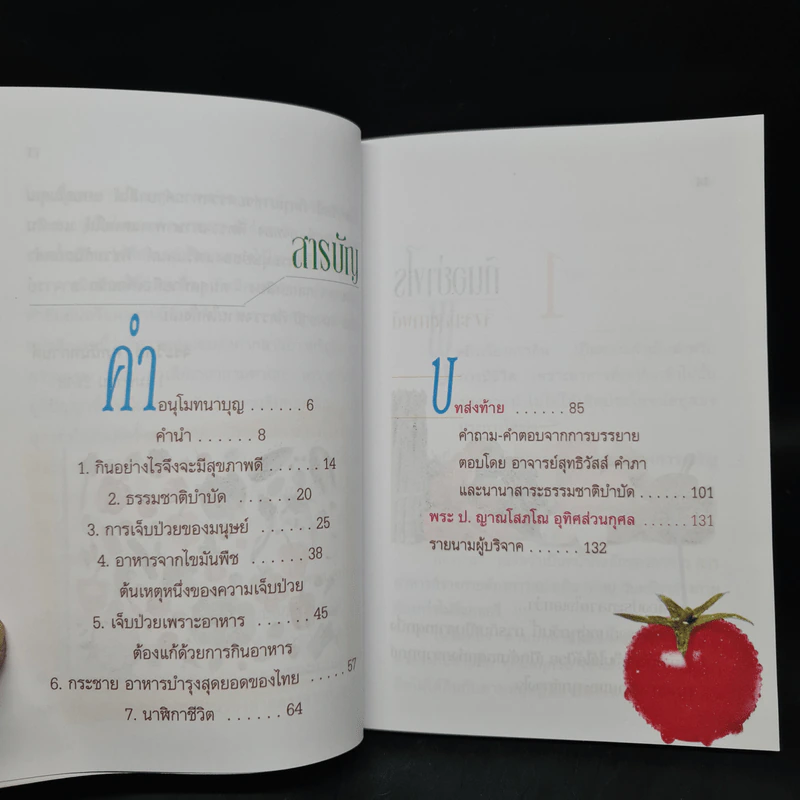 สารบัญ
คำอนุโมทนาบุญ ...... 6
คำนำ ...... 8
1. กินอย่างไรจึงจะมีสุขภาพดี ...... 14
2. ธรรมชาติบำบัด ...... 20
3. การเจ็บป่วยของมนุษย์ ...... 25
4. อาหารจากไขมันพืช ...... 38
ต้นเหตุหนึ่งของความเจ็บป่วย
5. เจ็บป่วยเพราะอาหาร ...... 45
ต้องแก้ด้วยการกินอาหาร
6. กระชาย อาหารบำรุงสุดยอดของไทย ..... 57
7. นาฬิกาชีวิต ...... 64
บทส่งท้าย ...... 85
คำถาม-คำตอบจากการบรรยาย
ตอบโดย อาจารย์สุทธิวัสส์ คำภา
และนานาสาระธรรมชาติบำบัด ...... 101
พระ ป. ญาณโสภโณ อุทิศส่วนกุศล ...... 131
รายนามผู้บริจาค ...... 132